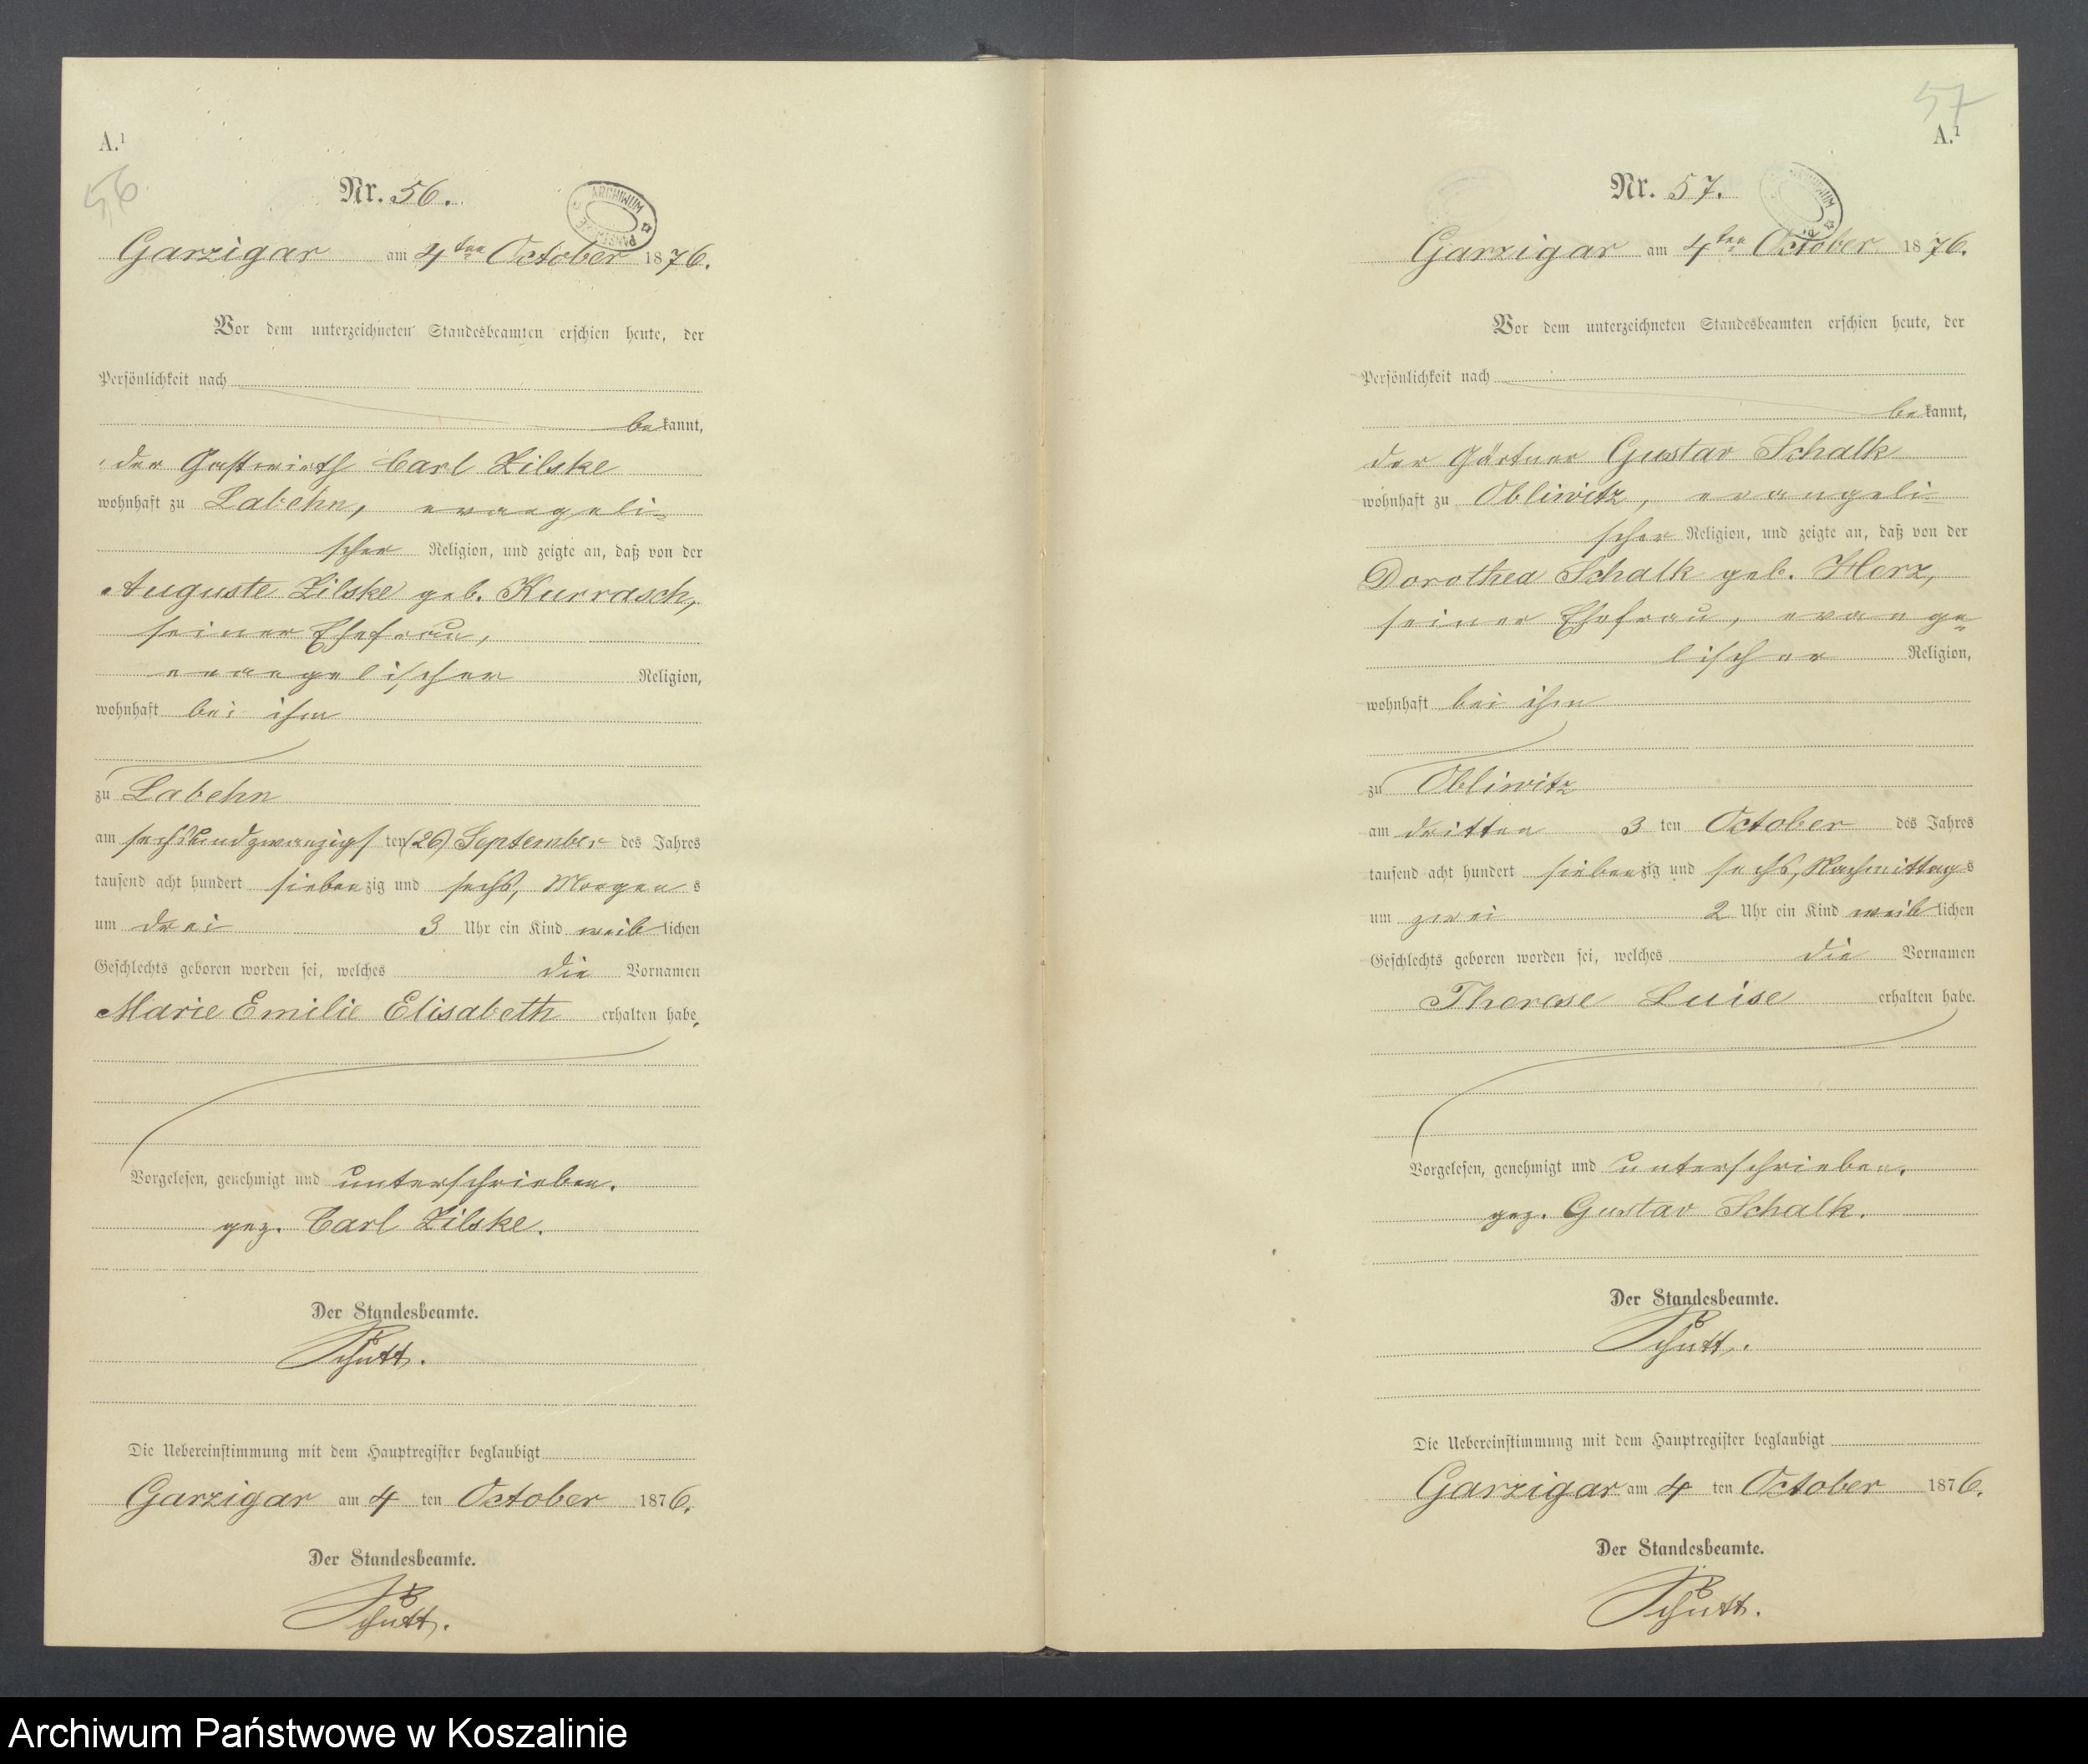 A.¹
56
Nr. 56.
ARCHIWUM
Garzigar am 4ten October 1876.
Vor dem unterzeichneten Standesbeamten erschien heute, der
Persönlichkeit nach
bekannt,
der Gastwirth Carl Zilske
wohnhaft zu Labehn, evangeli-
scher Religion, und zeigte an, daß von der
Auguste Zilske geb. Kurrasch,
seiner Ehefrau,
evangelischer Religion,
wohnhaft bei ihm
zu Labehn
am sechsundzwanzigsten (26) September des Jahres
tausend acht hundert siebenzig und sechs, Morgens
um drei 3 Uhr ein Kind weiblichen
Geschlechts geboren worden sei, welches die Vornamen
Marie Emilie Elisabeth erhalten habe.
Vorgelesen, genehmigt und unterschrieben.
gez. Carl Zilske.
Der Standesbeamte.
Schutt.
Die Uebereinstimmung mit dem Hauptregister beglaubigt
Garzigar am 4 ten October 1876.
Der Standesbeamte.
Schutt.
57
A.¹
Nr. 57.
Garzigar am 4ten October 1876.
Vor dem unterzeichneten Standesbeamten erschien heute, der
Persönlichkeit nach
bekannt,
der Gärtner Gustav Schalk
wohnhaft zu Obliwitz, evangeli-
scher Religion, und zeigte an, daß von der
Dorothea Schalk geb. Herz,
seiner Ehefrau, evange=
lischer Religion,
wohnhaft bei ihm
zu Obliwitz
am dritten 3 ten October des Jahres
tausend acht hundert siebenzig und sechs, Nachmittags
um zwei 2 Uhr ein Kind weiblichen
Geschlechts geboren worden sei, welches die Vornamen
Therese Luise erhalten habe.
Vorgelesen, genehmigt und unterschrieben.
gez. Gustav Schalk.
Der Standesbeamte.
Schutt.
Die Uebereinstimmung mit dem Hauptregister beglaubigt
Garzigar am 4 ten October 1876.
Der Standesbeamte.
Schutt.
Archiwum Państwowe w Koszalinie